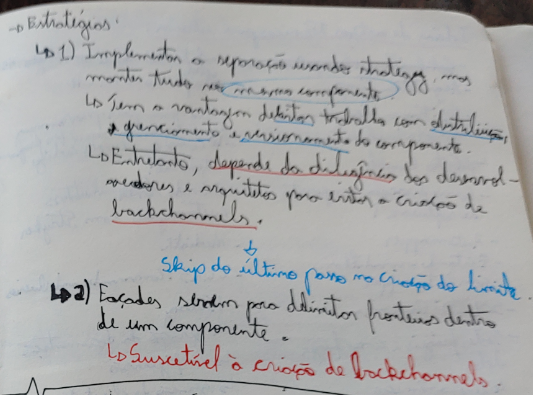 → Estratégias:
↳ 1) Implementar a separação usando strategy, mas
manter tudo no mesmo componente.
↳ Tem a vantagem de trabalho com distribuição,
gerenciamento e versionamento do componente.
↳ Entretanto, depende da diligência dos desenvol-
vedores e arquitetos para evitar a criação de
backchannels.
↓
Skip do último passo na criação do limite.
↳ 2) Façades servem para delimitar fronteiras dentro
de um componente.
↳ Suscetível à criação de backchannels.